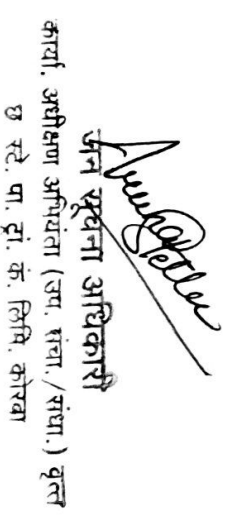 जन सूचना अधिकारी
कार्या. अधीक्षण अभियंता (उप. संचा./संधा.) वृत्त
छ स्टे. पा. ट्रां. कं. लिमि. कोरबा